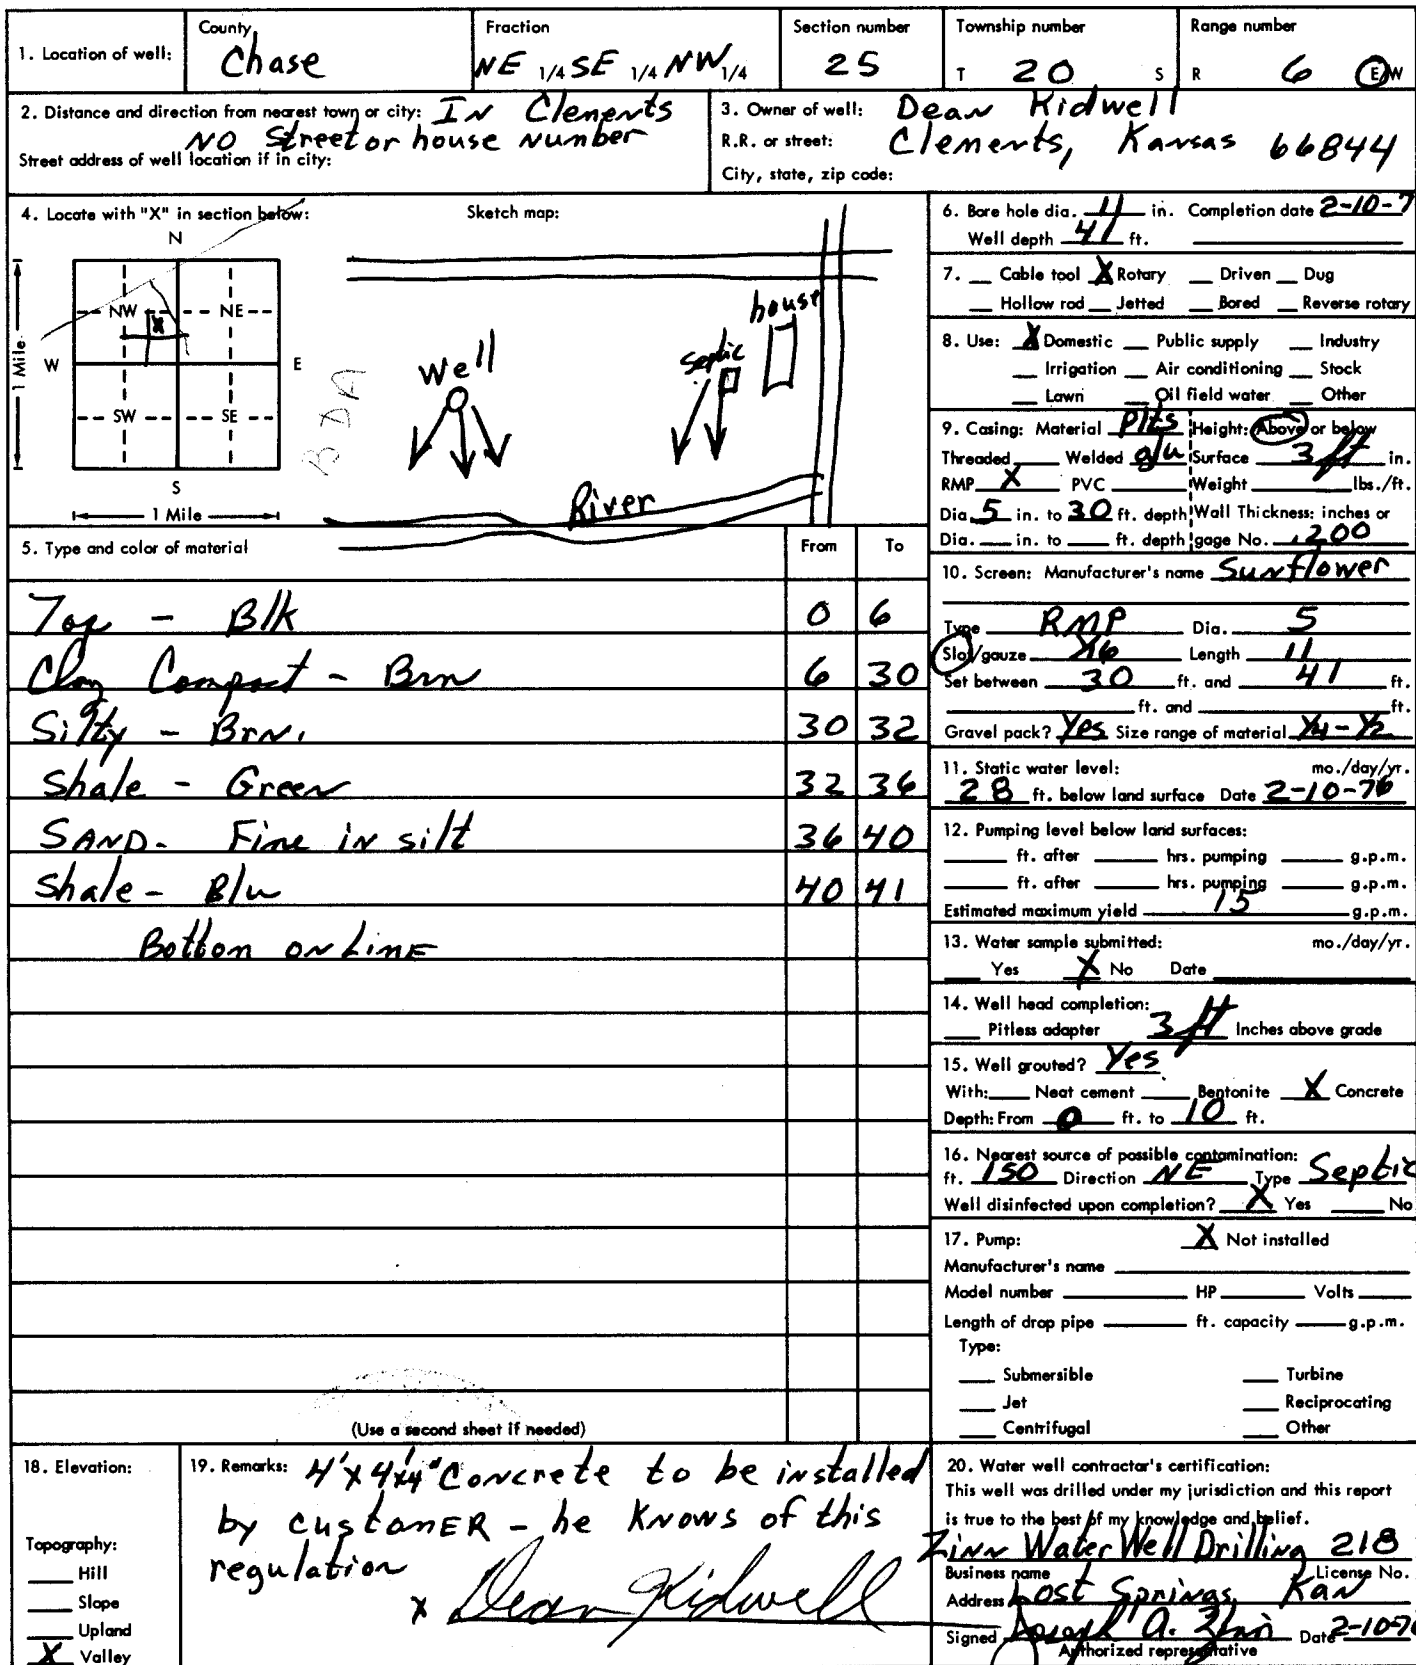 1. Location of well: County Chase Fraction NE 1/4 SE 1/4 NW 1/4 Section number 25 Township number T 20 S Range number R 6 E/W
2. Distance and direction from nearest town or city: In Clements
No Street or house number
Street address of well location if in city:
3. Owner of well: Dean Kidwell
R.R. or street: Clements, Kansas 66844
City, state, zip code:
4. Locate with "X" in section below:
N
NW NE
X
W E
SW SE
S
1 Mile
1 Mile
BDA
Sketch map:
house
septic
Well
River
5. Type and color of material From To
Top - Blk 0 6
Clay Compact - Brn 6 30
Silty - Brn. 30 32
Shale - Green 32 36
SAND - Fine in silt 36 40
Shale - Blu 40 41
Bottom on Line
(Use a second sheet if needed)
6. Bore hole dia. 11 in. Completion date 2-10-7
Well depth 41 ft.
7. Cable tool X Rotary Driven Dug
Hollow rod Jetted Bored Reverse rotary
8. Use: X Domestic Public supply Industry
Irrigation Air conditioning Stock
Lawn Oil field water Other
9. Casing: Material Plts Height: Above or below
Threaded Welded glu Surface 3 ft in.
RMP X PVC Weight lbs./ft.
Dia. 5 in. to 30 ft. depth Wall Thickness: inches or
Dia. in. to ft. depth gage No. .200
10. Screen: Manufacturer's name Sunflower
Type RMP Dia. 5
Slot/gauze 1/16 Length 11
Set between 30 ft. and 41 ft.
ft. and ft.
Gravel pack? Yes Size range of material 1/4-1/2
11. Static water level: mo./day/yr.
28 ft. below land surface Date 2-10-76
12. Pumping level below land surfaces:
ft. after hrs. pumping g.p.m.
ft. after hrs. pumping g.p.m.
Estimated maximum yield 15 g.p.m.
13. Water sample submitted: mo./day/yr.
Yes X No Date
14. Well head completion:
Pitless adapter 3 ft Inches above grade
15. Well grouted? Yes
With: Neat cement Bentonite X Concrete
Depth: From 0 ft. to 10 ft.
16. Nearest source of possible contamination:
ft. 150 Direction NE Type Septic
Well disinfected upon completion? X Yes No
17. Pump: X Not installed
Manufacturer's name
Model number HP Volts
Length of drop pipe ft. capacity g.p.m.
Type:
Submersible Turbine
Jet Reciprocating
Centrifugal Other
18. Elevation:
Topography:
Hill
Slope
Upland
X Valley
19. Remarks: 4'x4'x4" Concrete to be installed
by customER - he Knows of this
regulation
x Dean Kidwell
20. Water well contractor's certification:
This well was drilled under my jurisdiction and this report
is true to the best of my knowledge and belief.
Zinn Water Well Drilling 218
Business name License No.
Address Lost Springs, Kan
Signed Joseph A. Zinn Date 2-10-76
Authorized representative